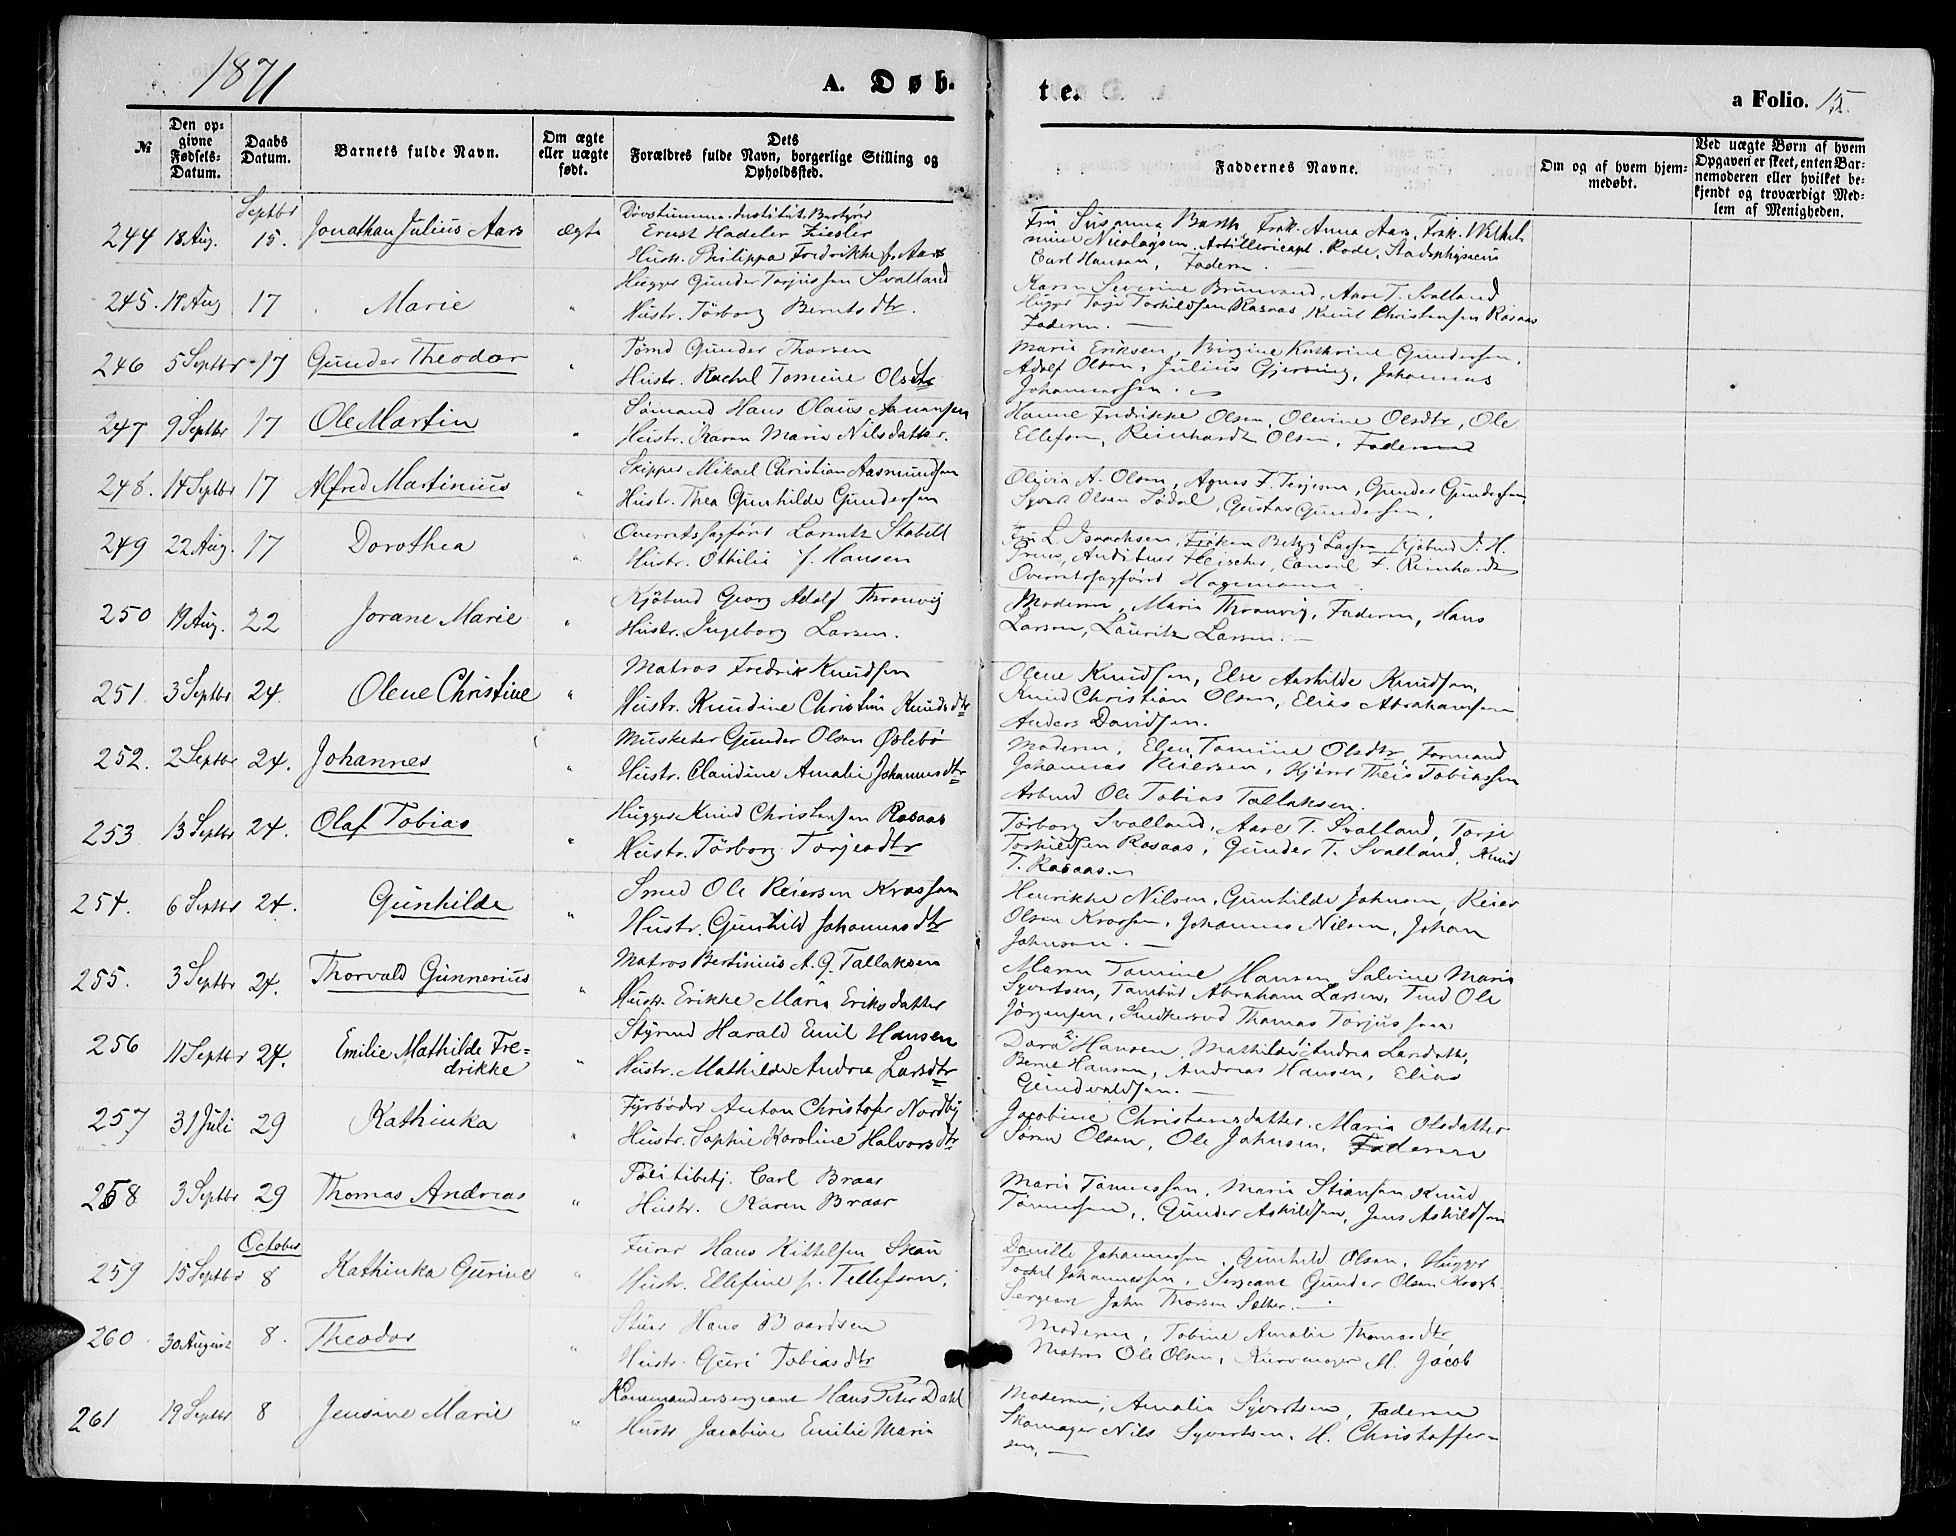 1871
A. Døb-
te.
a Folio. 15.
№
Den op-
givne
Fødsels-
Datum.
Daabs
Datum.
Barnets fulde Navn.
Om ægte
eller uægte
født.
Dets
Forældres fulde Navn, borgerlige Stilling og
Opholdssted.
Faddernes Navne.
Om og af hvem hjem-
medøbt.
Ved uægte Børn af hvem
Opgaven er skeet, enten Bar-
nemoderen eller hvilket be-
kjendt og troværdigt Med-
lem af Menigheden.
Septbr
244 18 Aug. 15. Jonathan Julius Aars ægte
Døvstumme-Institut. Bestyrer
Ernst Hadeler Ziesler
Hustr. Philippa Fredrikke f. Aars
Fru Susanna Barth, Frøk. Anna Aars, Frøk. Wilhel-
mine Nicolaysen, Artillericapt. Rode, Stadsphysicus
Carl Hansen, Faderen.
245. 17 Aug 17 Marie "
Hugger Gunder Torjussen Svalland
Hustr. Törborg Berntsdtr.
Karen Severine Brunvand, Aase T. Svalland
Hugger Torje Torkildsen Rosaas, Knut Christensen Rosaas
Faderen.
246 5 Septbr 17 Gunder Theodor "
Tømd Gunder Thorsen
Hustr. Rachel Tomine Olsdtr
Maria Eriksen, Birgine Kathrine Gundersen,
Adolf Olsen, Julius Gjersing, Johannes
Johannessen.
247 9 Septbr 17 Ole Martin "
Sømand Hans Olaus Aanonsen
Hustr. Karen Maria Nilsdatter.
Hanne Fredrikke Olsen, Olevine Olsdtr, Ole
Ellefsen, Reinhardt Olsen, Faderen
248. 14 Septbr 17 Alfred Martinius "
Skipper Mikael Christian Aasmundsen
Hustr. Thea Gunhilde Gundersen
Olivia A. Olsen, Agnes F. Terjesen, Gunder Gundersen,
Syvert Olsen Lødal, Gustav Gundersen.
249 22 Aug. 17 Dorothea "
Overretssagförer Lorentz Stabell
Hustr. Ottilia f. Hansen
Fru L. Isaachsen, Frøken Betzy Lassen, Kjøbmd J. H.
Preus, Auditeur Fleischer, Consul F. Reinhardt
Overretssagförer Hagemann
250 19 Aug. 22 Jorane Marie "
Kjøbmd Georg Adolf Thronvig
Hustr. Ingeborg Larsen.
Moderen, Maria Thronvig, Faderen, Hans
Larsen, Lauritz Larsen.
251. 3 Septbr 24. Olene Christine "
Matros Fredrik Knudsen
Hustr. Knudine Christine Knudsdtr
Olene Knudsen, Else Aashilde Knudsen,
Knud Christian Olsen, Elias Abrahamsen
Anders Davidsen.
252. 2 Septbr 24. Johannes "
Musketer Gunder Olsen Øslebø
Hustr. Claudine Amalie Johannesdtr
Moderen, Elen Tomine Olsdtr, Formand
Johannes Reiersen, Kjører Theis Tobiassen
Arbmd Ole Tobias Tallaksen.
253 13 Septbr 24. Olaf Tobias "
Hugger Knud Christensen Rosaas
Hustr. Törborg Torjesdtr
Törborg Svalland, Aase T. Svalland, Torje
Torkildsen Rosaas, Gunder T. Svalland, Knud
T. Rosaas.
254. 6 Septbr 24. Gunhilde "
Smed Ole Reiersen Krossen
Hustr. Gunhild Johannesdtr
Henrikke Nilsen, Gunhilde Johnsen, Reier
Olsen Krossen, Johannes Nilsen, Johan
Johnsen.
255. 3 Septbr 24. Thorvald Gunnerius "
Matros Bertinius A. G. Tallaksen
Hustr. Erikke Maria Eriksdatter
Maren Tomine Hansen, Salvine Maria
Syvertsen, Tambur Abraham Larsen, Tmd Ole
Jörgensen, Snedkersvd Thomas Torjussen
256 11 Septbr 24. Emilie Mathilde Fre-
drikke "
Styrmd Harald Emil Hansen
Hustr. Mathilde Andrea Larsdtr
Dora Hansen, Mathilde Andrea Larsdatter,
Bernt Hansen, Andreas Hansen, Elias
Gundvaldsen.
257 31 Juli 29 Kathinka "
Fyrbøder Anton Christofer Nordby
Hustr. Sophie Karoline Halvorsdtr
Jacobine Christensdatter, Maria Olsdatter
Søren Olsen, Ole Johnsen, Faderen
258 3 Septbr 29 Thomas Andreas "
Politibetj. Carl Braar
Hustr. Karen Braar
Maria Tønnessen, Maria Stiansen, Knud
Tønnessen, Gunder Askildsen, Jens Askildsen
October
259 15 Septbr 8 Kathinka Gurine "
Furer Hans Kittelsen Skau
Hustr. Ellefine f. Tellefsen.
Danille Johannessen, Gunhild Olsen, Hugger
Torkel Johannessen, Sergeant Gunder Olsen Krogh
Sergeant John Thorsen Sather.
260 30 August 8. Theodor "
Stuer Hans Baardsen
Hustr. Guri Tobiasdtr
Moderen, Tobine Amalie Thomasdtr
Matros Ole Olsen, Kurvmager M. Jacob
261 19 Septbr 8 Jensine Marie "
Kommandersergeant Hans Peter Dahl
Hustr Jacobine Emilie Maria
Moderen, Amalia Syvertsen, Faderen
Skomager Nils Syvertsen, H. Christoffer-
sen.